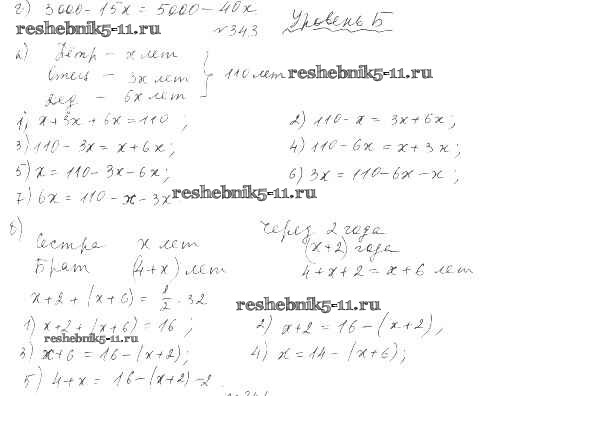 2) 3000 - 15x = 5000 - 40x
reshebnik5-11.ru № 343 Уровень Б
а) Пётр – x лет
Отец – 3x лет } 110 лет reshebnik5-11.ru
дед – 6x лет
1) x + 3x + 6x = 110 ; 2) 110 - x = 3x + 6x ;
3) 110 - 3x = x + 6x ; 4) 110 - 6x = x + 3x ;
5) x = 110 - 3x - 6x ; 6) 3x = 110 - 6x - x ;
7) 6x = 110 - x - 3x reshebnik5-11.ru
б) через 2 года
Сестра x лет (x+2) года
Брат (4+x) лет 4+x+2 = x+6 лет
x+2 + (x+6) = 1/2 · 32
reshebnik5-11.ru
1) x+2 + (x+6) = 16 ; 2) x+2 = 16 - (x+2) ,
reshebnik5-11.ru
3) x+6 = 16 - (x+2) ; 4) x = 14 - (x+6) ;
5) 4+x = 16 - (x+2) - 2